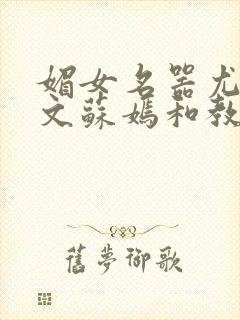 媚女名器尤
文蘇媽和教
舊夢御歌